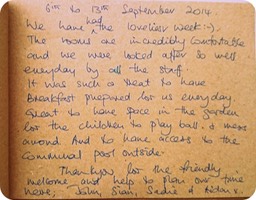 6th to 13th September 2014.
We have had the loveliest week :-).
The rooms are incredibly comfortable
and we were looked after so well
everyday by all the staff.
It was such a treat to have
Breakfast prepared for us everyday
Great to have space in the garden
for the children to play ball & mess
around And to have access to the
communal pool outside.
Thankyou for the friendly
welcome and help to plan our time
here, John, Sian, Sadie & Aidan x.